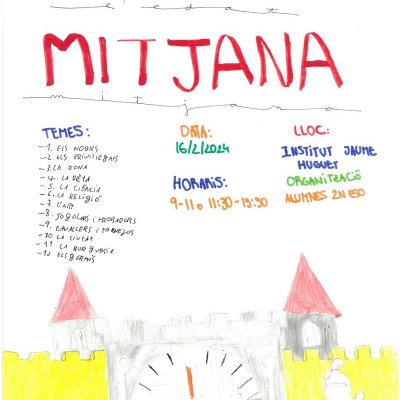 l'edat
MITJANA
mitjana
TEMES:
-1. ELS NOBLES
-2. ELS PRIVILEGIATS
-3. LA DONA
-4. LA DÈTA
-5. LA CIÈNCIA
-6. LA RELIGIÓ
-7. L'ART
-8. JOGLARS I TROBADORS
-9. CAVALLERS I TORNEJOS
-10. LA CIUTAT
-11. LA BURGUESIA
-12. ELS GREMIS
DATA:
16/2/2024
HORARIS:
9-11 o 11:30-13:30
LLOC:
INSTITUT JAUME
HUGUET
ORGANITZACIÓ
ALUMNES 2N ESO